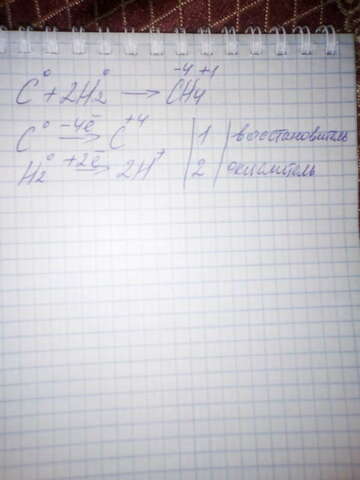 C⁰ + 2H₂⁰ → C⁻⁴H₄⁺¹
C⁰ –4ē → C⁺⁴ | 1 | восстановитель
H₂⁰ +2ē → 2H⁺ | 2 | окислитель